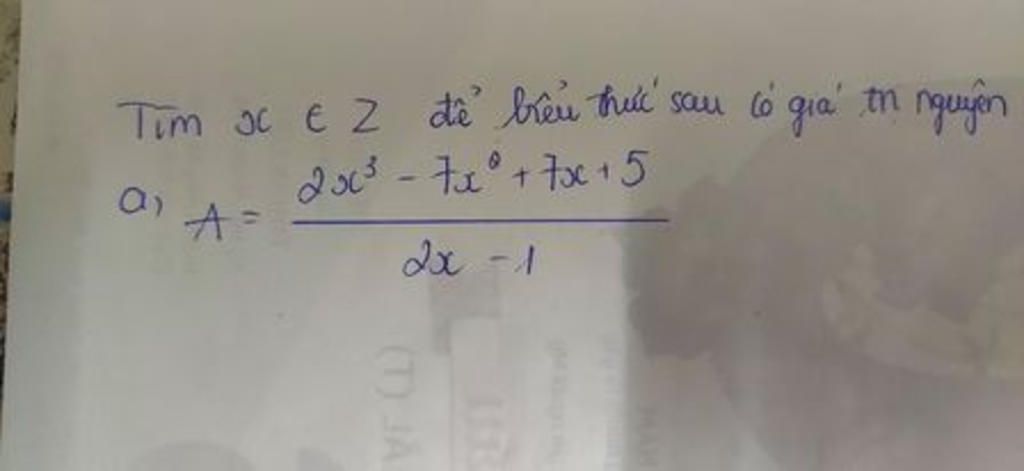 Tìm x ∈ Z để biểu thức sau có giá trị nguyên
a, A = (2x³ - 7x² + 7x + 5) / (2x - 1)